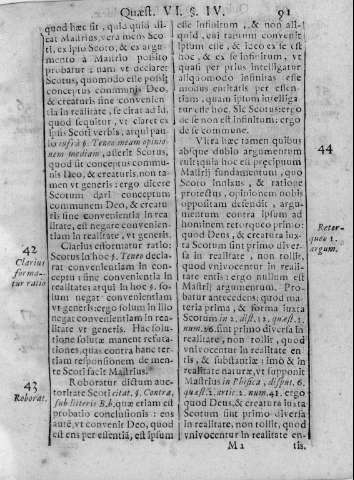 Quæst. VI. §. IV. 91
quod hæc sit, quia quid dicat Mastrius, vera mens Scoti, ex ipso Scoto, & ex argumento à Mastrio posito
probatur: nam vt declaret
Scotus, quomodo esse possit
conceptus communis Deo,
& creaturis sine convenientia in realitate, se citat ad id,
quod sequitur, vt claret ex
ipsis Scoti verbis, atqui paulo infrà §. Teneo meam opinionem mediam, asserit Scotus,
quod sit conceptus communis Deo, & creaturis, non tamen vt generis: ergo dicere
Scotum dari conceptum
communem Deo, & creaturis sine convenientia in realitate, est negare convenientiam in realitate, vt generis.
42
Clarius
formatur ratio
Clarius efformatur ratio:
Scotus in hoc §. Teneo declarat convenientiam in conceptu: sine convenientia in
realitate: atqui in hoc §. solum negat convenientiam
vt generis: ergo solum in illo
negat convenientiam in realitate vt generis. Hac solutione solutæ manent refutationes, quas contra hanc tertiam responsionem de mente Scoti facit Mastrius.
43
Roborat.
Roboratur dictum auctoritate Scoti citat. §. Contra,
sub litteris B, b, quæ etiam est
probatio conclusionis: ens
autē, vt convenit Deo, quod
est ens per essentiā, est ipsum
esse infinitum, & non aliquid, cui tantum convenit
ipsum esse, & ideo ex se est
hoc, & ex se infinitum, vt
quasi per prius intelligatur
aliquomodo infinitas esse
modus entitatis per essentiam, quam ipsum intelligatur esse hoc. Sic Scotus: ergo
de se non est infinitum: ergo
de se commune.
44
Vltra hæc tamen quibus
absque dubio argumentum
ruit; quia hoc est præcipuum
Mastrij fundamentum, quo
Scoto innixus, & ratione
protectus, opinionem nobis
oppositam defendit, argumentum contra ipsum ad
hominem retorquetur: quod
Retorqueo 1.
argum.
quod Deus, & creatura iuxta Scotum sint primo diversa in realitate, non tollit,
quod vnivocentur in realitate entis: ergo nullum est
Mastrij argumentum. Probatur antecedens: quod materia prima, & forma iuxta
Scotum in 2. dist. 12. quæst. 1.
num. 16. sint primo diversa in
realitate, non tollit, quod
vnivocentur in realitate entis, & substantiæ: imò & in
realitate naturæ, vt supponit
Mastrius in Phisica, disput. 6.
quæst. 2. artic. 2. num. 41. ergo
quod Deus, & creatura iuxta
Scotum sint primo diversa
in realitate, non tollit, quod
vnivocentur in realitate en-
M 2 tis.